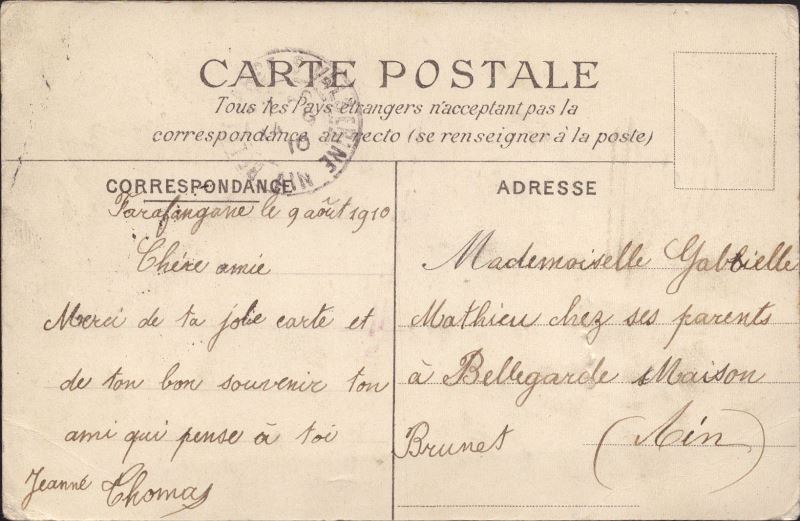 CARTE POSTALE
Tous les Pays étrangers n'acceptent pas la
correspondance au recto (se renseigner à la poste)
CORRESPONDANCE
Farafangane le 9 août 1910
Chère amie
Merci de ta jolie carte et
de ton bon souvenir ton
ami qui pense à toi
Jeanne Thomas
ADRESSE
Mademoiselle Gabrielle
Mathieu chez ses parents
à Bellegarde Maison
Brunet (Ain)